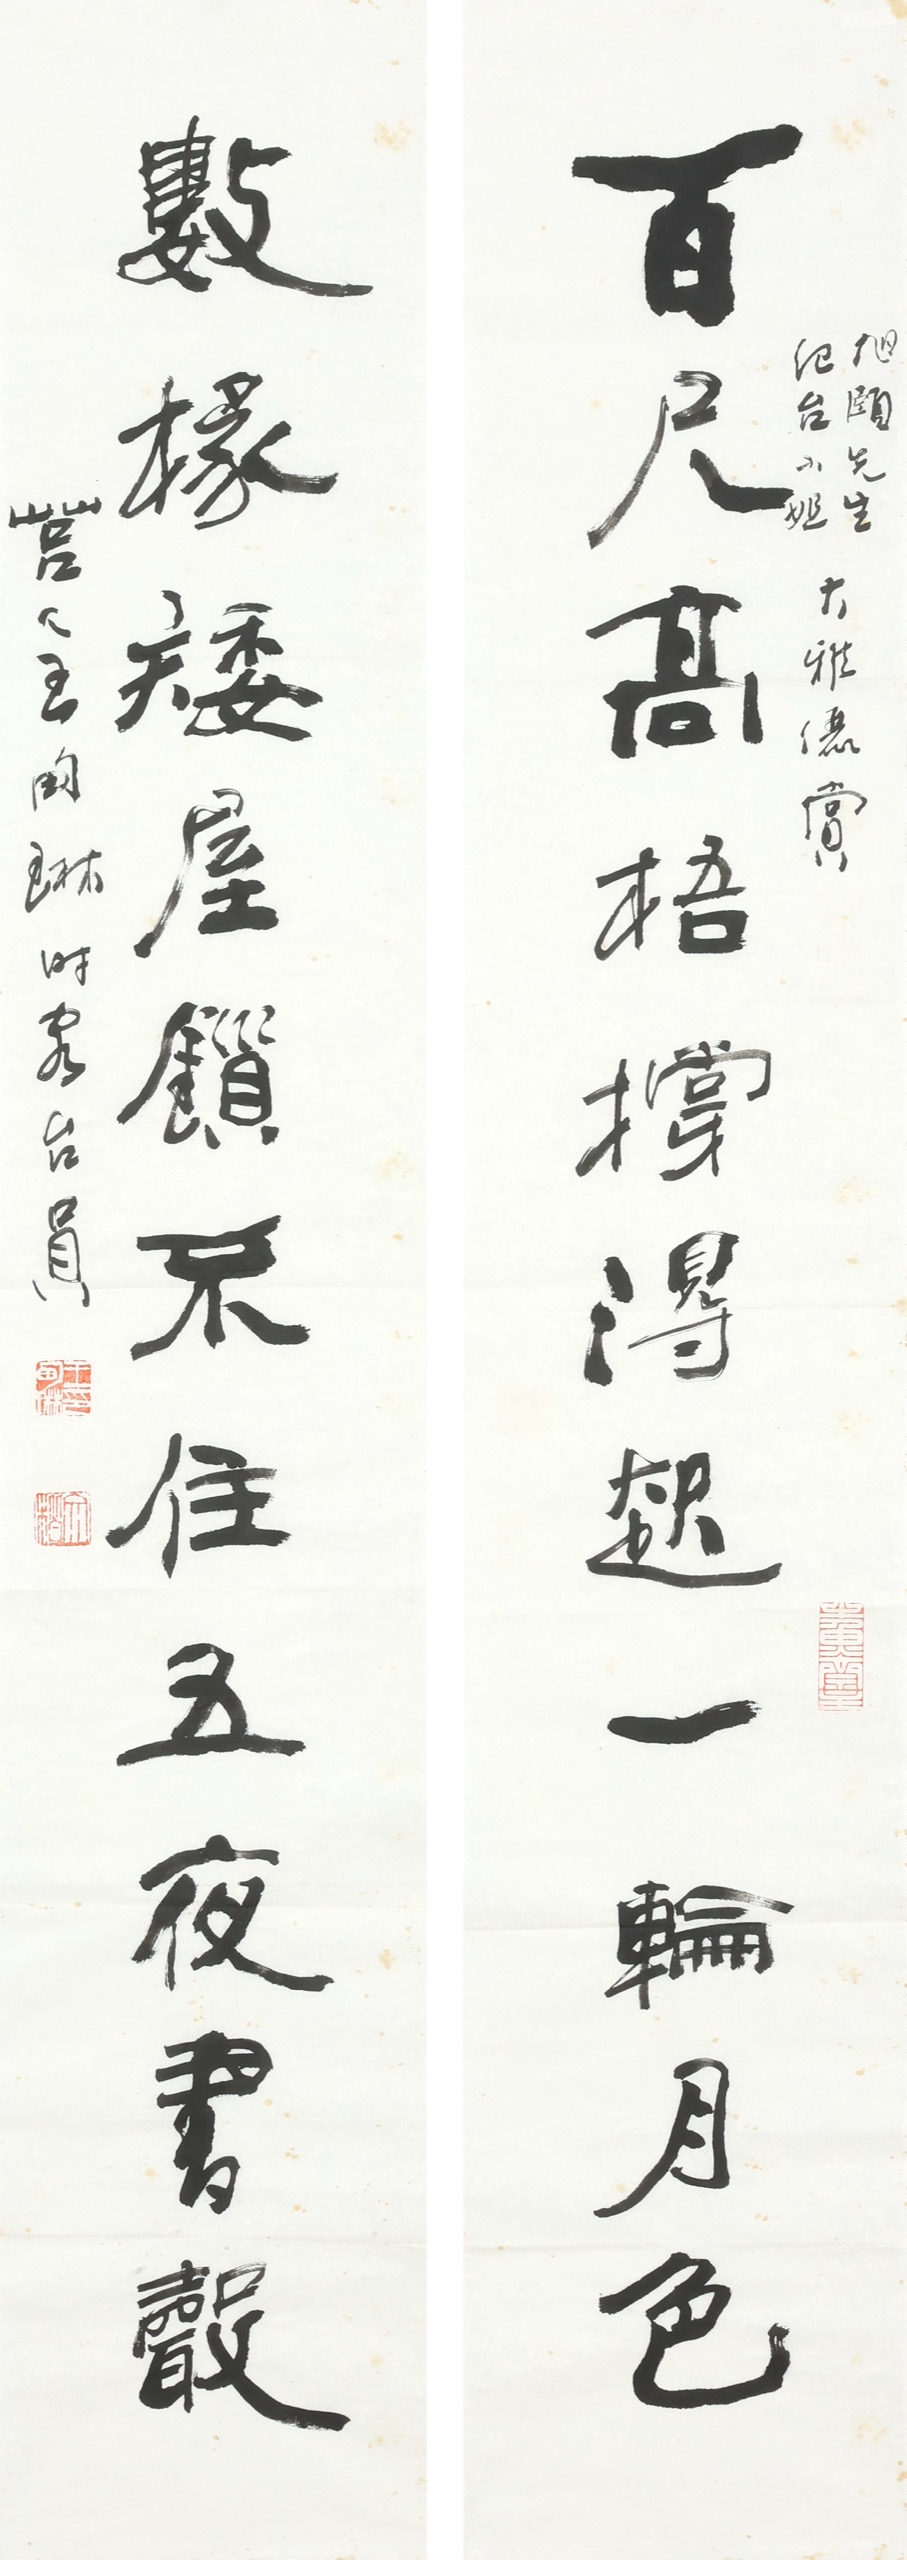 百尺高梧撐得起一輪月色
旭頤先生
紀台小姐
大雅儷賞
數椽矮屋鎖不住五夜書聲
莒人王甸琳時客台員